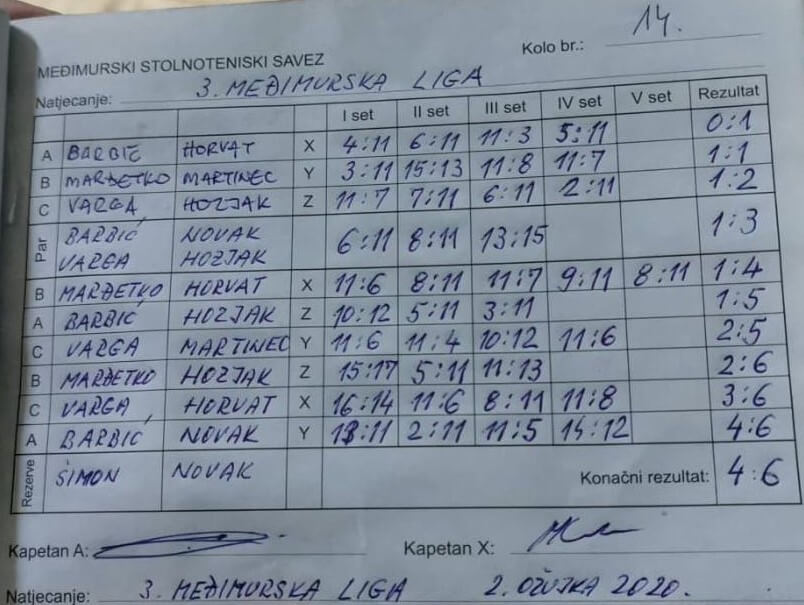 MEĐIMURSKI STOLNOTENISKI SAVEZ Kolo br.: 14.
Natjecanje: 3. MEĐIMURSKA LIGA
I set II set III set IV set V set Rezultat
A BARBIĆ HORVAT X 4:11 6:11 11:3 5:11 0:1
B MARĐETKO MARTINEC Y 3:11 15:13 11:8 11:7 1:1
C VARGA HOZJAK Z 11:7 7:11 6:11 2:11 1:2
Par BARBIĆ NOVAK 6:11 8:11 13:15 1:3
VARGA HOZJAK
B MARĐETKO HORVAT X 11:6 8:11 11:7 9:11 8:11 1:4
A BARBIĆ HOZJAK Z 10:12 5:11 3:11 1:5
C VARGA MARTINEC Y 11:6 11:4 10:12 11:6 2:5
B MARĐETKO HOZJAK Z 15:17 5:11 11:13 2:6
C VARGA HORVAT X 16:14 11:6 8:11 11:8 3:6
A BARBIĆ NOVAK Y 13:11 2:11 11:5 14:12 4:6
Rezerve ŠIMON NOVAK Konačni rezultat: 4:6
Kapetan A: Kapetan X:
Natjecanje: 3. MEĐIMURSKA LIGA 2. OŽUJKA 2020.